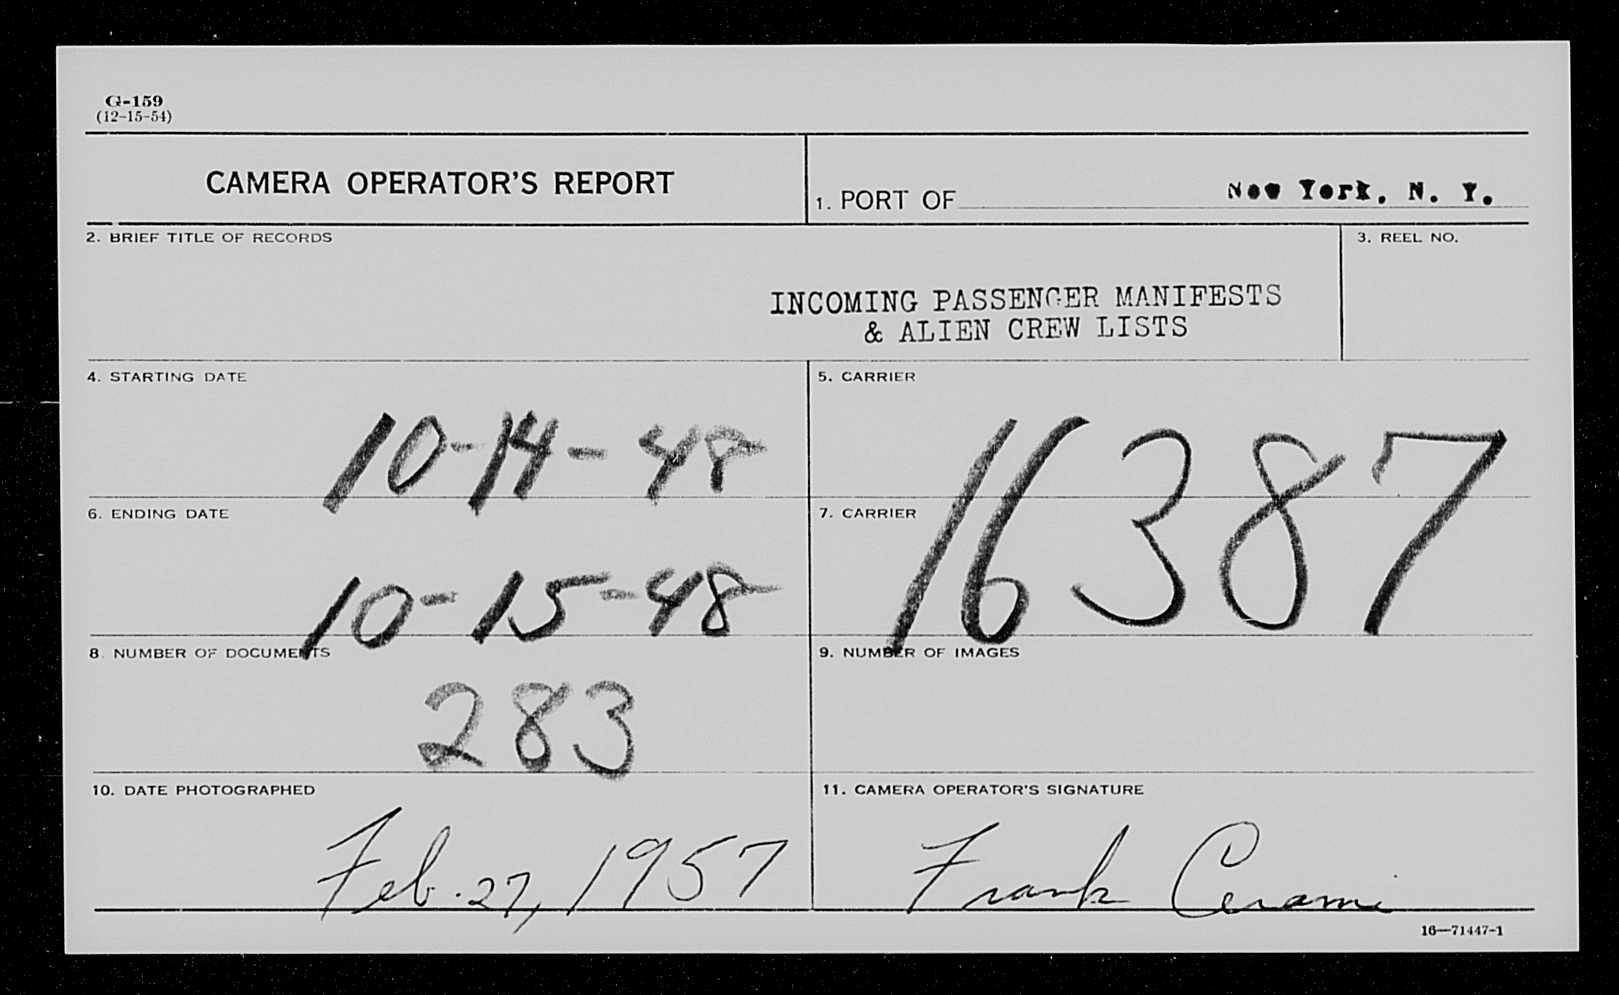 G-159
(12-15-54)
CAMERA OPERATOR'S REPORT
1. PORT OF New York, N. Y.
2. BRIEF TITLE OF RECORDS
3. REEL NO.
INCOMING PASSENGER MANIFESTS
& ALIEN CREW LISTS
4. STARTING DATE
10-14-48
5. CARRIER
16387
6. ENDING DATE
10-15-48
7. CARRIER
8. NUMBER OF DOCUMENTS
283
9. NUMBER OF IMAGES
10. DATE PHOTOGRAPHED
Feb. 27, 1957
11. CAMERA OPERATOR'S SIGNATURE
Frank Cerami
16—71447-1